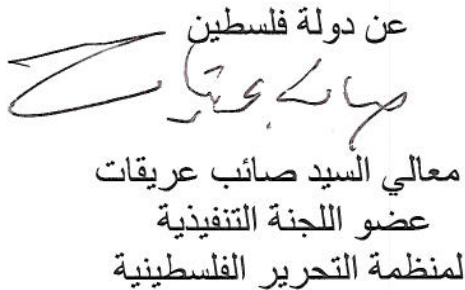 عن دولة فلسطين
معالي السيد صائب عريقات
عضو اللجنة التنفيذية
لمنظمة التحرير الفلسطينية